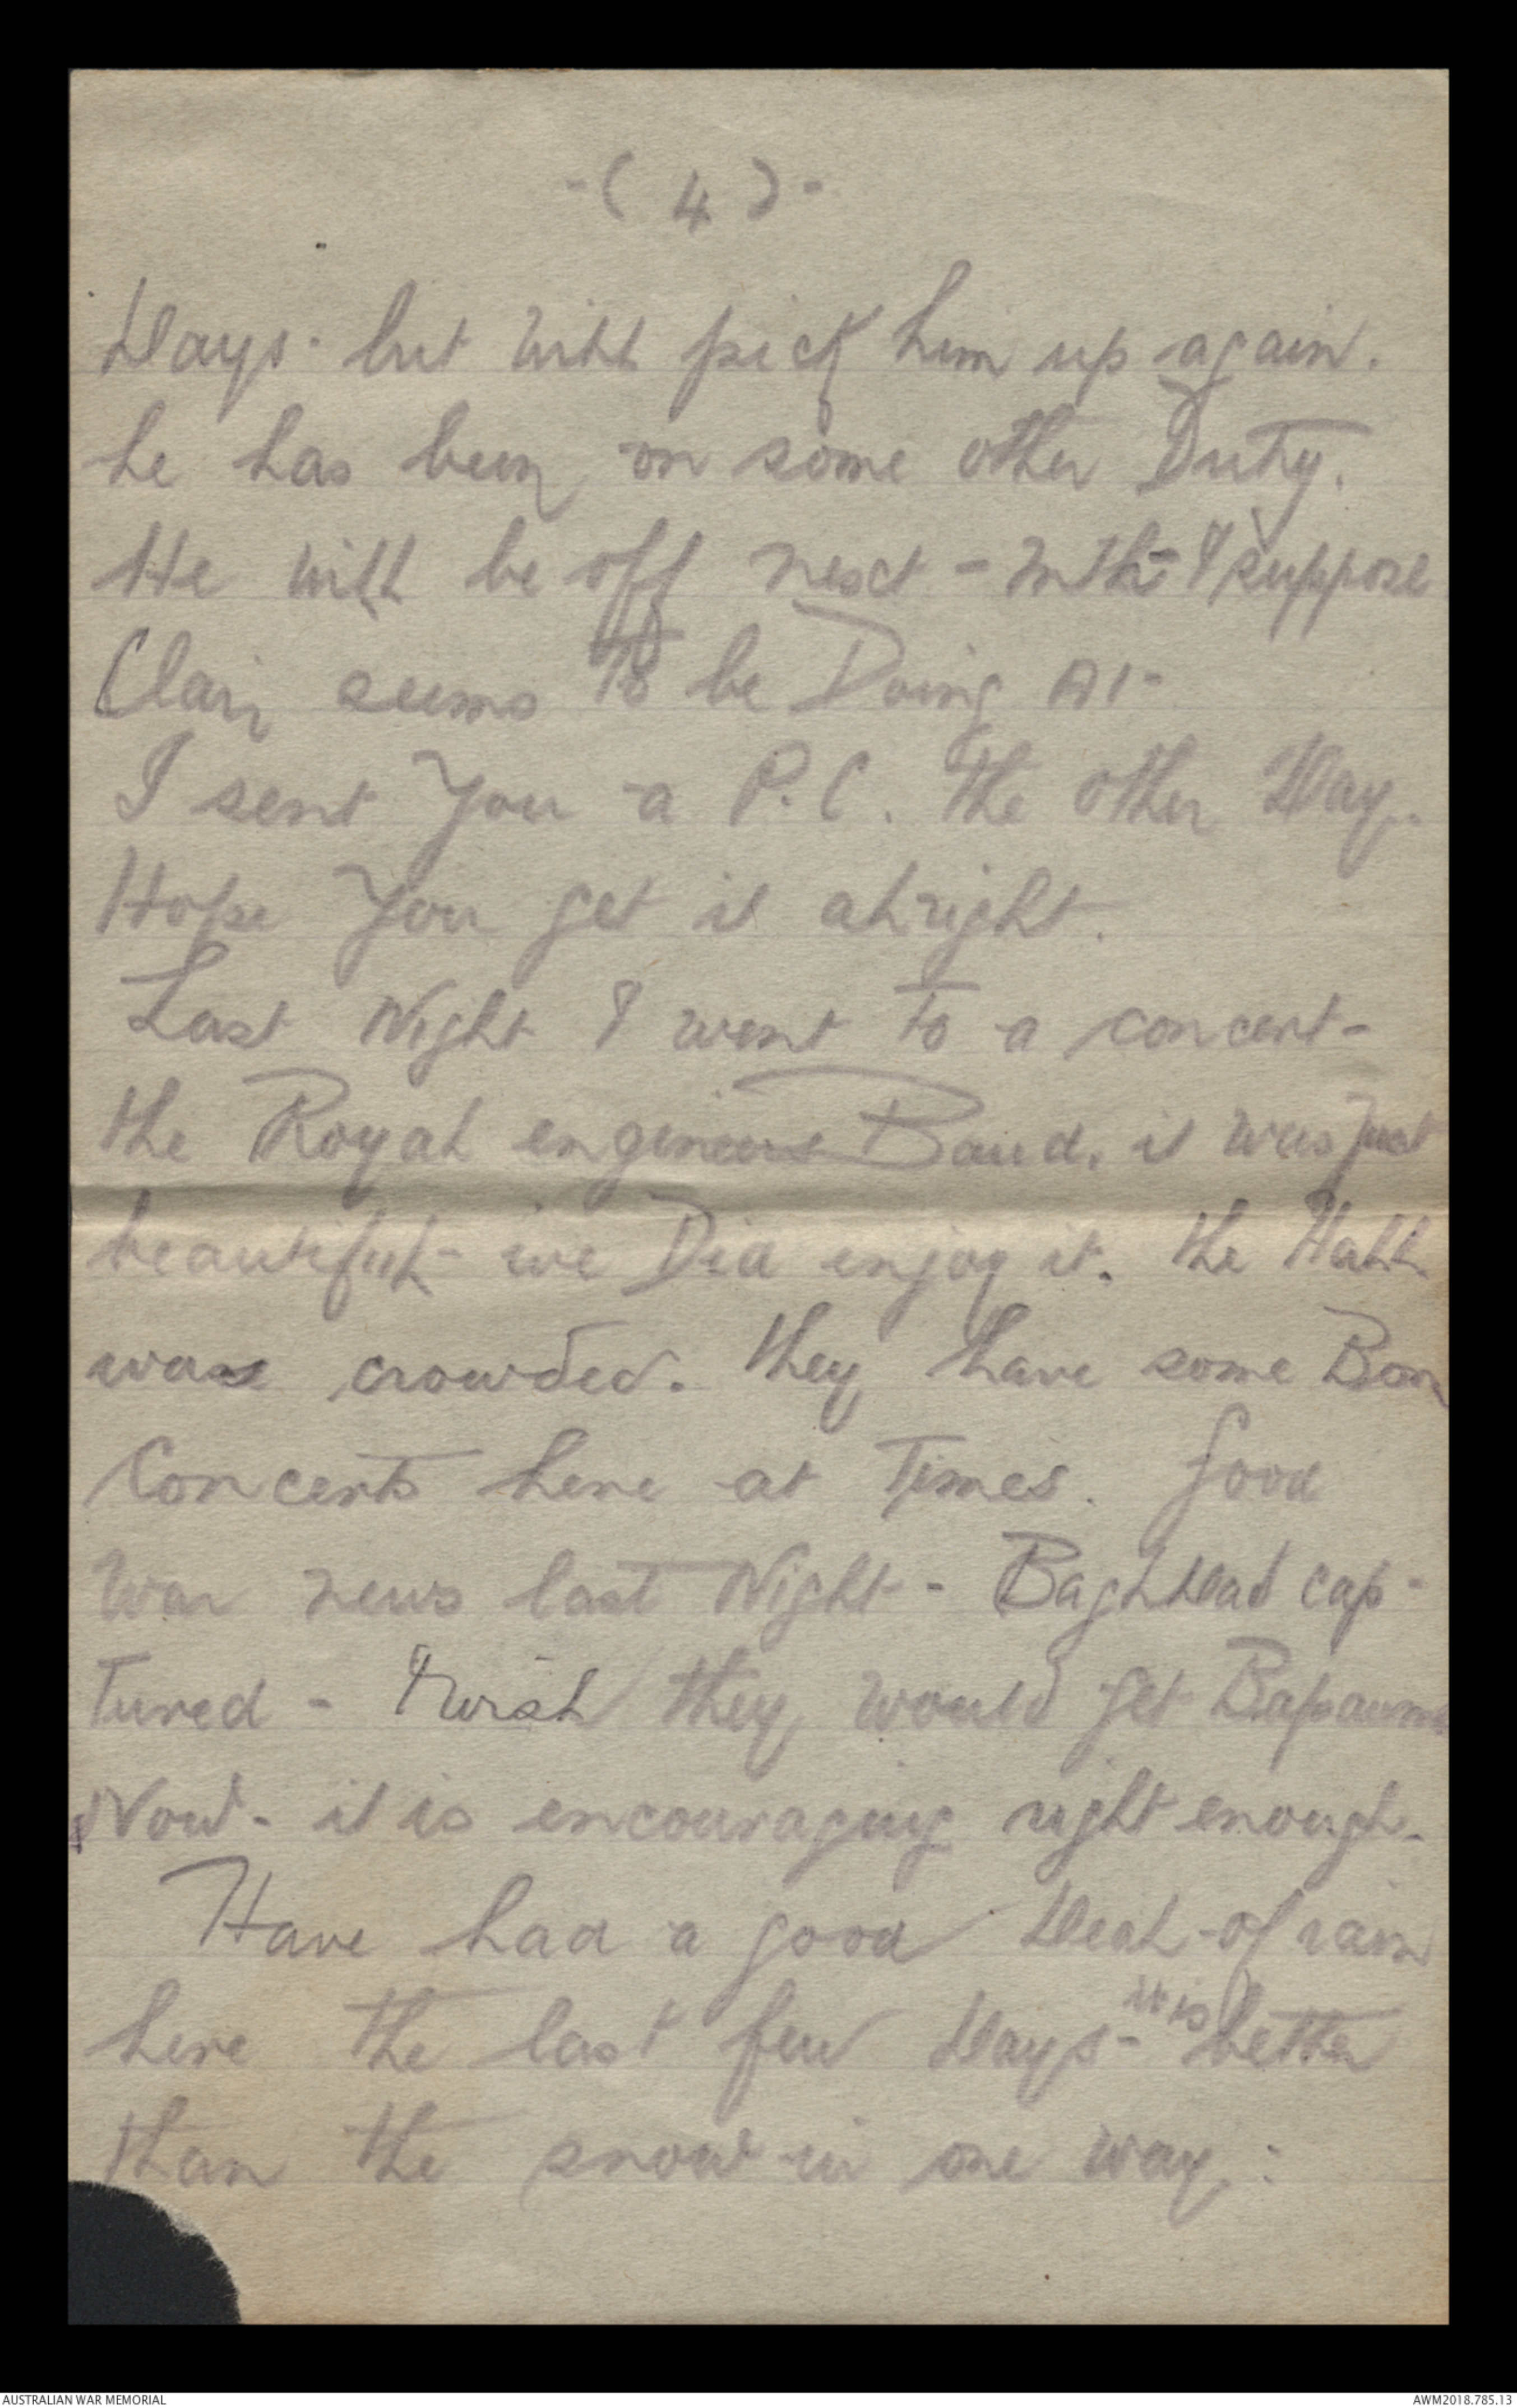 -( 4 )-
Days. but will pick him up again.
he has been on some other Duty.
He will be off next - mth - I suppose
Clair seems to be Doing A1 -
I sent You a P.C. the other Day.
Hope You get it alright.
Last Night I went to a concert -
the Royal engineers Band. it was just
beautiful - we Did enjoy it. the Hall
was crowded. they have some Bon
Concerts here at Times. Good
War news last Night - Baghdad cap-
tured - I wish they would get Bapaume
Now - it is encouraging right enough.
Have had a good Deal of rain
here the last few Days - it is better
than the snow in one way:
AUSTRALIAN WAR MEMORIAL
AWM2018.785.13